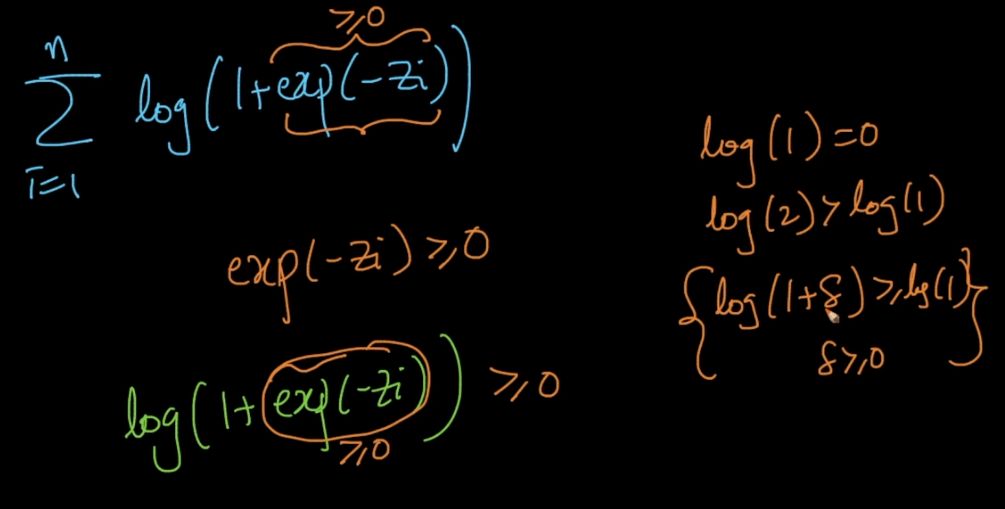 ≥0
n
∑ log(1+exp(-Zi))
i=1
exp(-Zi) ≥ 0
log(1+exp(-Zi)) ≥ 0
≥0
log(1)=0
log(2) > log(1)
{log(1+δ) ≥ log(1)}
δ ≥ 0